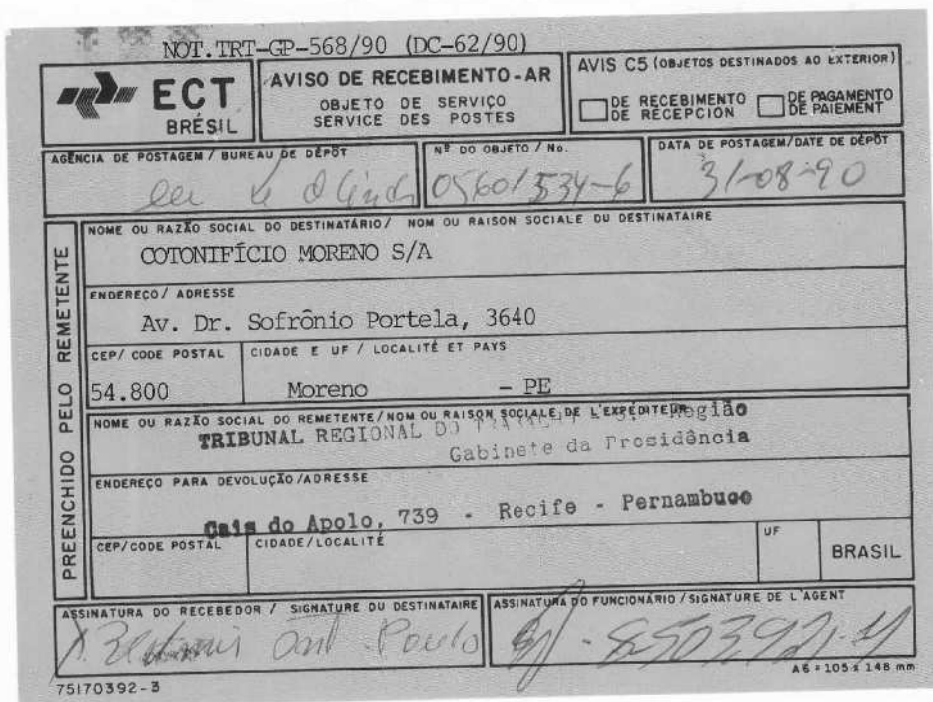 NOT.TRT-GP-568/90 (DC-62/90)
ECT
BRÉSIL
AVISO DE RECEBIMENTO-AR
OBJETO DE SERVIÇO
SERVICE DES POSTES
AVIS C5 (OBJETOS DESTINADOS AO EXTERIOR)
DE RECEBIMENTO
DE RECEPCION
DE PAGAMENTO
DE PAIEMENT
AGÊNCIA DE POSTAGEM / BUREAU DE DÉPÔT
Nº DO OBJETO / No.
05601534-6
DATA DE POSTAGEM/DATE DE DÉPÔT
31-08-90
PREENCHIDO PELO REMETENTE
NOME OU RAZÃO SOCIAL DO DESTINATÁRIO/ NOM OU RAISON SOCIALE DU DESTINATAIRE
COTONIFÍCIO MORENO S/A
ENDEREÇO/ ADRESSE
Av. Dr. Sofrônio Portela, 3640
CEP/ CODE POSTAL
54.800
CIDADE E UF / LOCALITÉ ET PAYS
Moreno - PE
NOME OU RAZÃO SOCIAL DO REMETENTE/NOM OU RAISON SOCIALE DE L'EXPÉDITEUR
TRIBUNAL REGIONAL DO Região
Gabinete da Presidência
ENDEREÇO PARA DEVOLUÇÃO/ADRESSE
Cais do Apolo, 739 - Recife - Pernambuco
CEP/CODE POSTAL
CIDADE/LOCALITÉ
UF
BRASIL
ASSINATURA DO RECEBEDOR / SIGNATURE DU DESTINATAIRE
ASSINATURA DO FUNCIONÁRIO / SIGNATURE DE L'AGENT
75170392-3
A6 = 105 x 148 mm